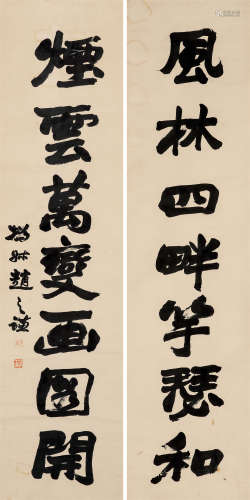 風林四畔竽瑟和
煙雲萬變画圖開
撝叔趙之謙